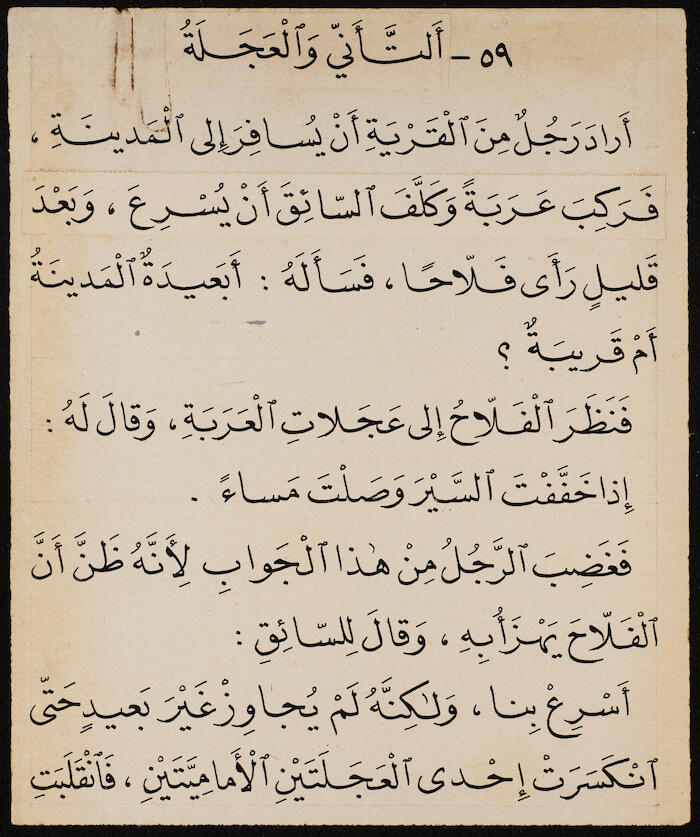 ٥٩ - اَلتَّأَنّي وَٱلْعَجَلَةُ
أَرادَ رَجُلٌ مِنَ ٱلْقَرْيَةِ أَنْ يُسافِرَ إِلى ٱلْمَدينَةِ ،
فَرَكِبَ عَرَبَةً وَكَلَّفَ ٱلسّائِقَ أَنْ يُسْرِعَ ، وَبَعْدَ
قَليلٍ رَأَى فَلّاحًا ، فَسَأَلَهُ : أَبَعيدَةٌ ٱلْمَدينَةُ
أَمْ قَريبَةٌ ؟
فَنَظَرَ ٱلْفَلّاحُ إِلى عَجَلاتِ ٱلْعَرَبَةِ ، وَقالَ لَهُ :
إِذا خَفَّفْتَ ٱلسَّيْرَ وَصَلْتَ مَساءً .
فَغَضِبَ ٱلرَّجُلُ مِنْ هٰذا ٱلْجَوابِ لِأَنَّهُ ظَنَّ أَنَّ
ٱلْفَلّاحَ يَهْزَأُ بِهِ ، وَقالَ لِلسّائِقِ :
أَسْرِعْ بِنا ، وَلٰكِنَّهُ لَمْ يُجاوِزْ غَيْرَ بَعيدٍ حَتّى
ٱنْكَسَرَتْ إِحْدى ٱلْعَجَلَتَيْنِ ٱلْأَمامِيَّتَيْنِ ، فَٱنْقَلَبَتِ